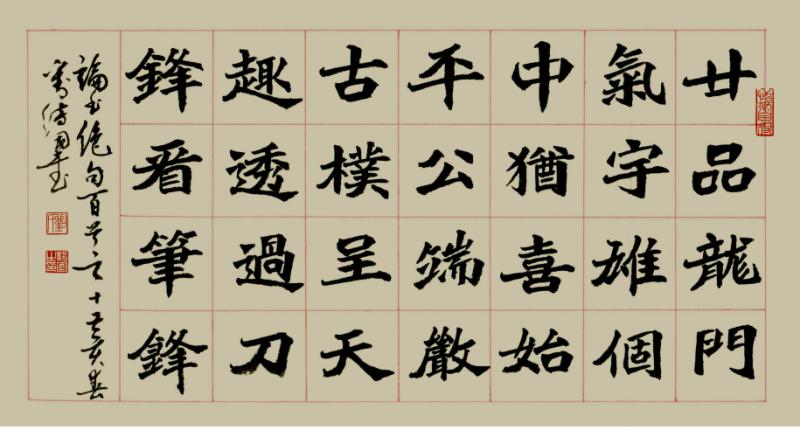 廿品龍門
氣宇雄個
中猶喜始
平公端嚴
古樸呈天
趣透過刀
鋒看筆鋒
論書絕句百首之十